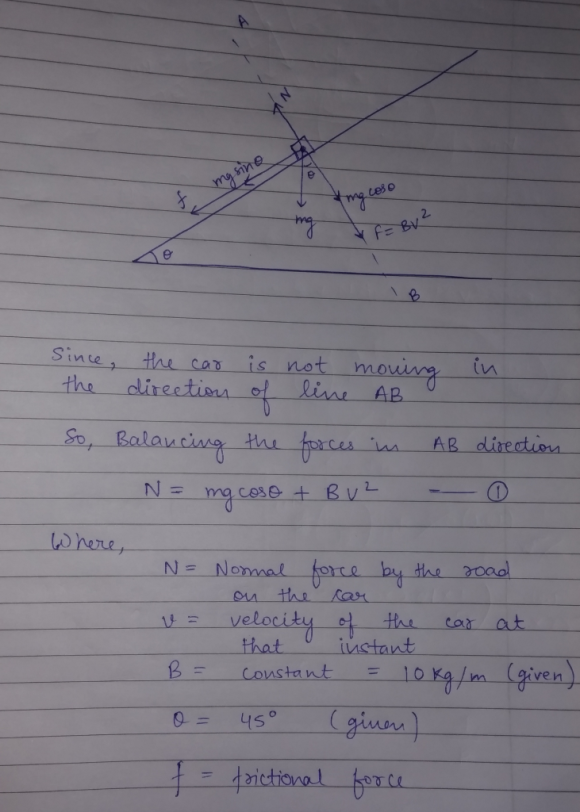 A
N
mg sinθ
f
θ
mg cosθ
mg
F = BV²
θ
B
Since, the car is not moving in
the direction of line AB
So, Balancing the forces in AB direction
N = mg cosθ + BV² — ①
Where,
N = Normal force by the road
on the car
v = velocity of the car at
that instant
B = constant = 10 Kg/m (given)
θ = 45° (given)
f = frictional force